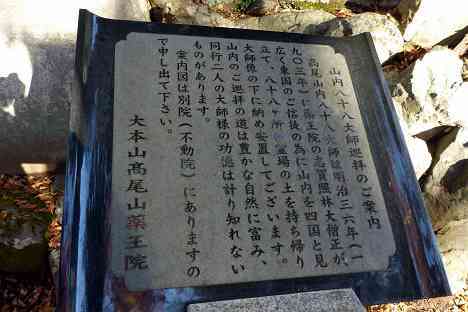 山内八十八大師巡拝のご案内
高尾山内八十八大師は明治三六年(一
九〇三年)に薬王院の志賀照林大僧正が、
広く東国のご信徒の為に山内を四国と見
立て、八十八ヶ所霊場の土を持ち帰り
大師像の下に納め安置してございます。
山内のご巡拝の道は豊かな自然に富み、
同行二人の大師様の功徳は計り知れない
ものがあります。
案内図は別院(不動院)にありますの
で申し出て下さい。
大本山髙尾山薬王院